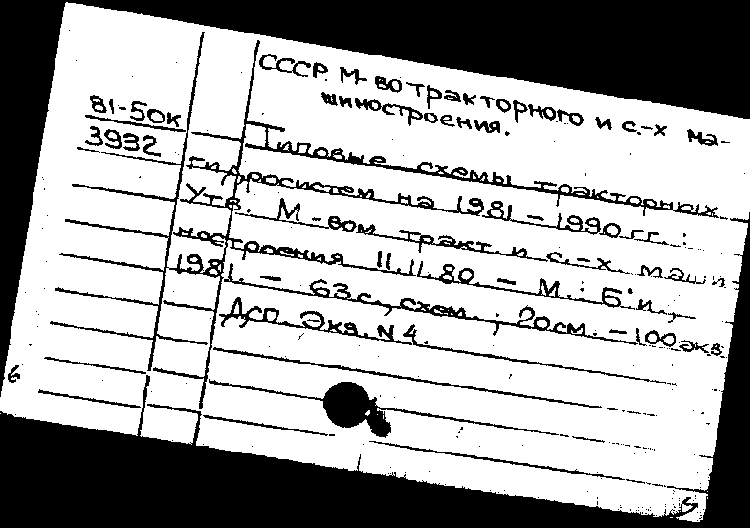 СССР. М-во тракторного и с.-х ма-
шиностроения.
81-50к
3932
Типовые схемы тракторных
гидросистем на 1981-1990 гг. :
Утв. М-вом тракт. и с.-х. маши-
ностроения 11.11.80. - М.: Б.и.,
1981. - 63с., схем. ; 20см. - 100экз
Дсп. Экз. N 4.
6